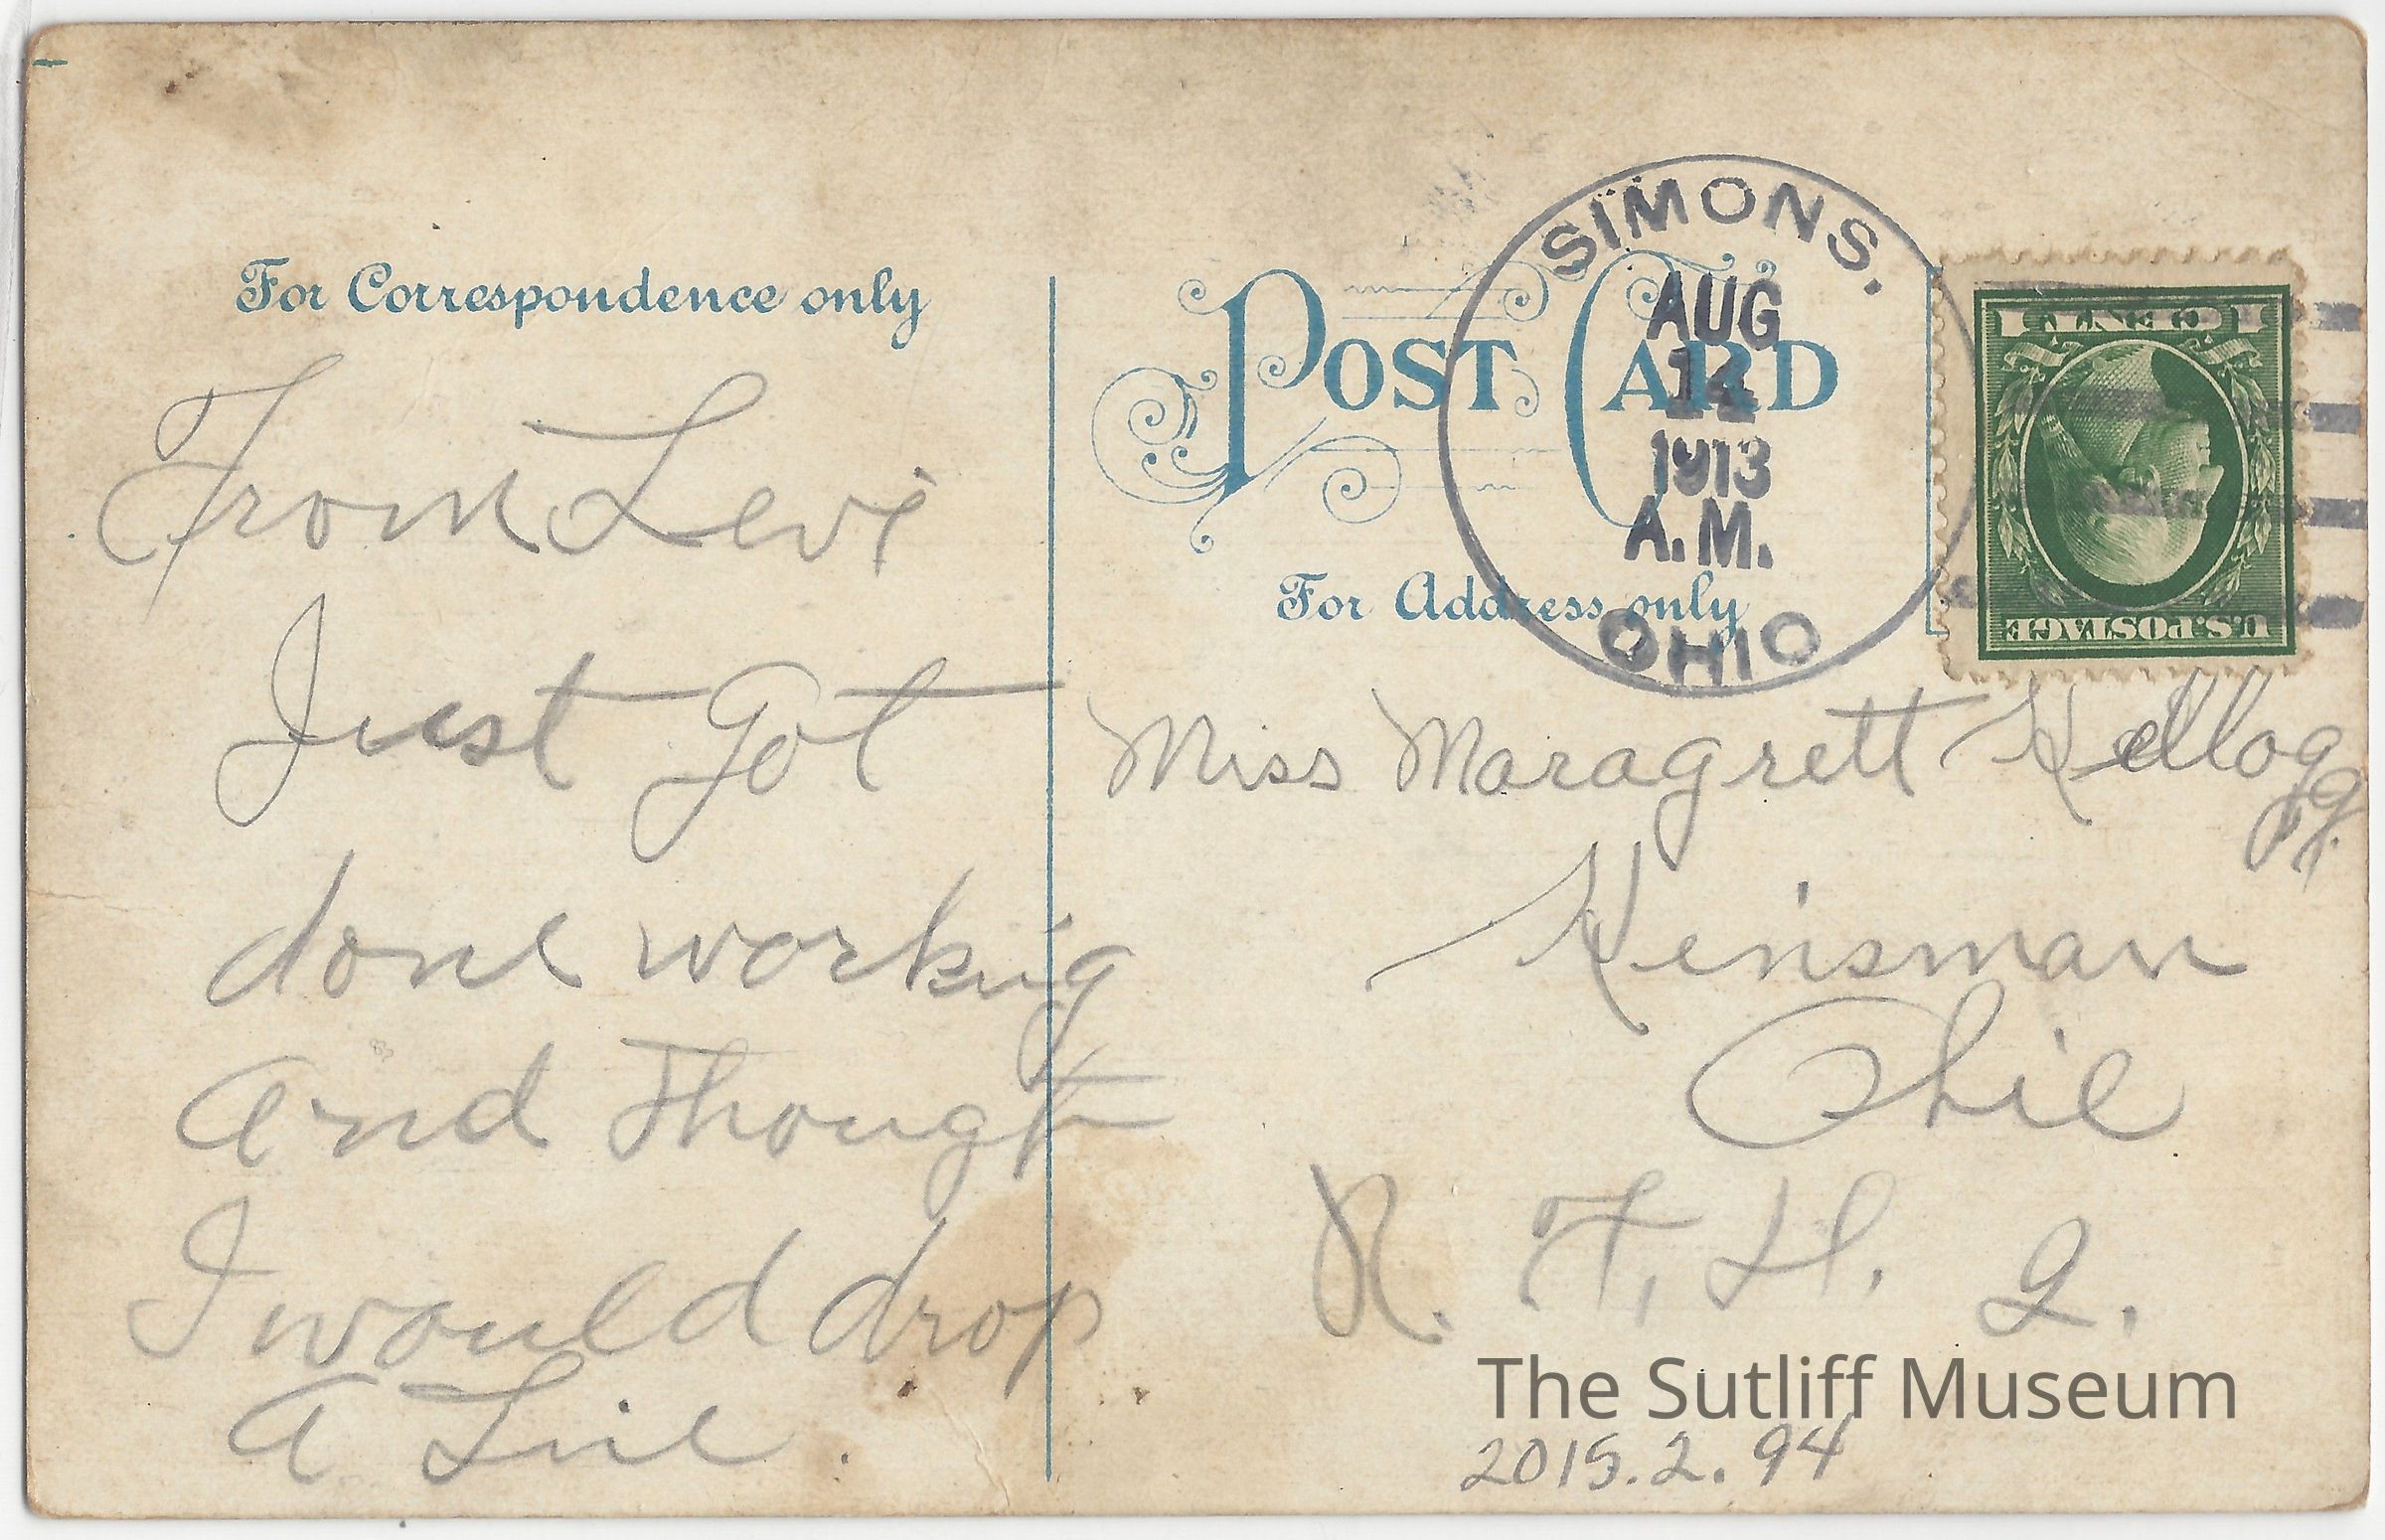 For Correspondence only
From Levi
Just got
done working
and Thought
I would drop
a Line.
POST CARD
For Address only
SIMONS.
AUG
14
1913
A.M.
OHIO
1 CENT 1
U.S. POSTAGE
Miss Maragrett Kellogg
Kinsman
Ohio
R. F. D. 2.
The Sutliff Museum
2015.2.94